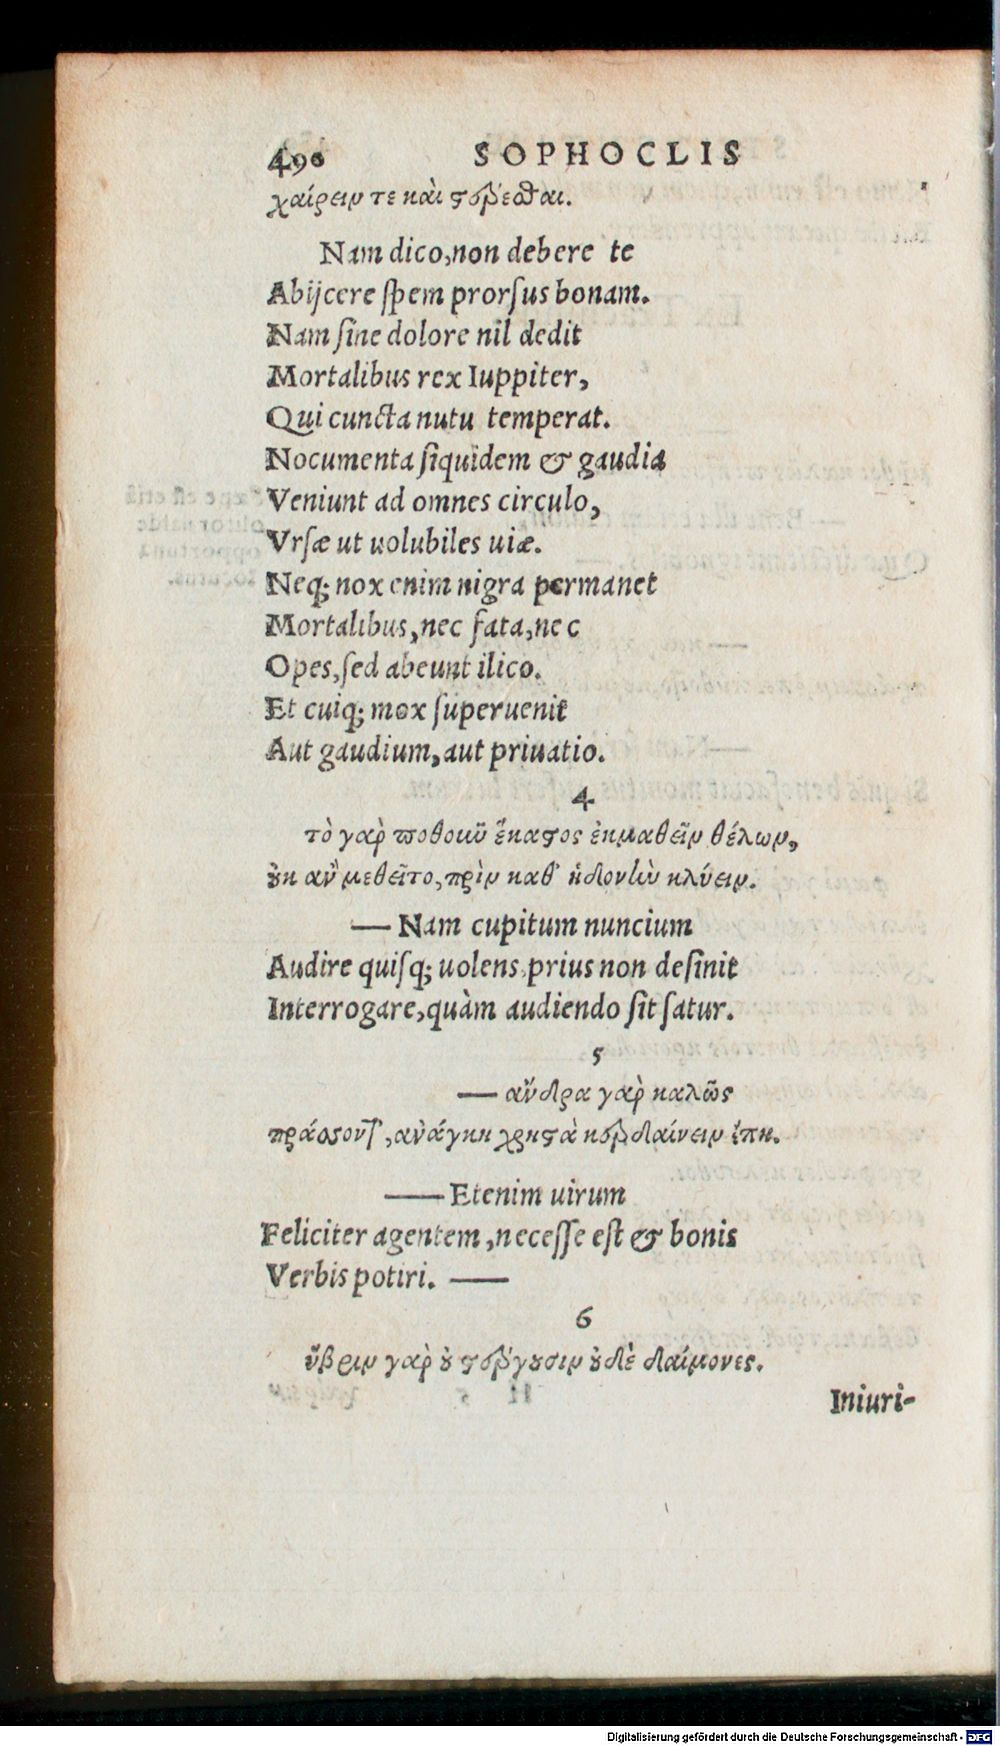 490 SOPHOCLIS
χαίρειν τε καὶ στέρεσθαι.
Nam dico, non debere te
Abijcere ſpem prorſus bonam.
Nam ſine dolore nil dedit
Mortalibus rex Iuppiter,
Qui cuncta nutu temperat.
Nocumenta ſiquidem & gaudia
Veniunt ad omnes circulo,
Vrſæ ut uolubiles uiæ.
Neq; nox enim nigra permanet
Mortalibus, nec fata, nec
Opes, ſed abeunt ilico.
Et cuiq; mox ſuperuenit
Aut gaudium, aut priuatio.
4
τὸ γὰρ ποθοιωῦ ἕκαστος ἐκμαθεῖν θέλων,
οὐκ ἂν μεθεῖτο, πρὶν καθ' ἡδονὴν κλύειν.
— Nam cupitum nuncium
Audire quiſq; uolens prius non deſinit
Interrogare, quàm audiendo ſit ſatur.
5
— ἄνδρα γὰρ καλῶς
πράσσοντ', ἀνάγκη χρηστὰ κερδαίνειν ἔπη.
— Etenim uirum
Feliciter agentem, neceſſe eſt & bonis
Verbis potiri. —
6
ὕβριν γὰρ οὐ στέργουσιν οὐδὲ δαίμονες.
Iniuri-
Digitalisierung gefördert durch die Deutsche Forschungsgemeinschaft - DFG